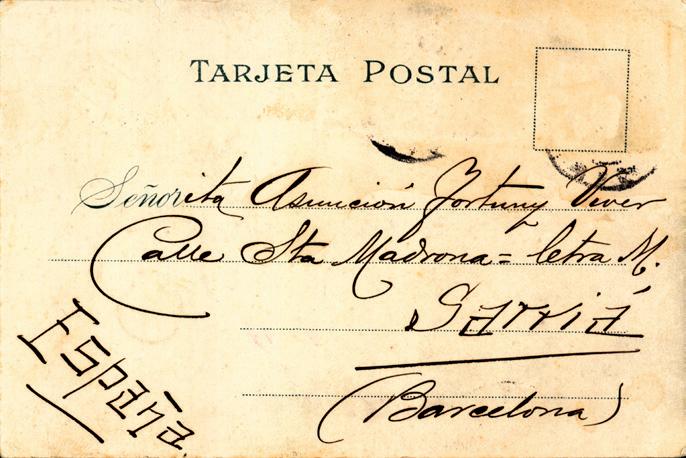 TARJETA POSTAL
Señorita Asunción Fortuny Viver
Calle Sta Madrona = letra M.
SArriÁ
(Barcelona)
España